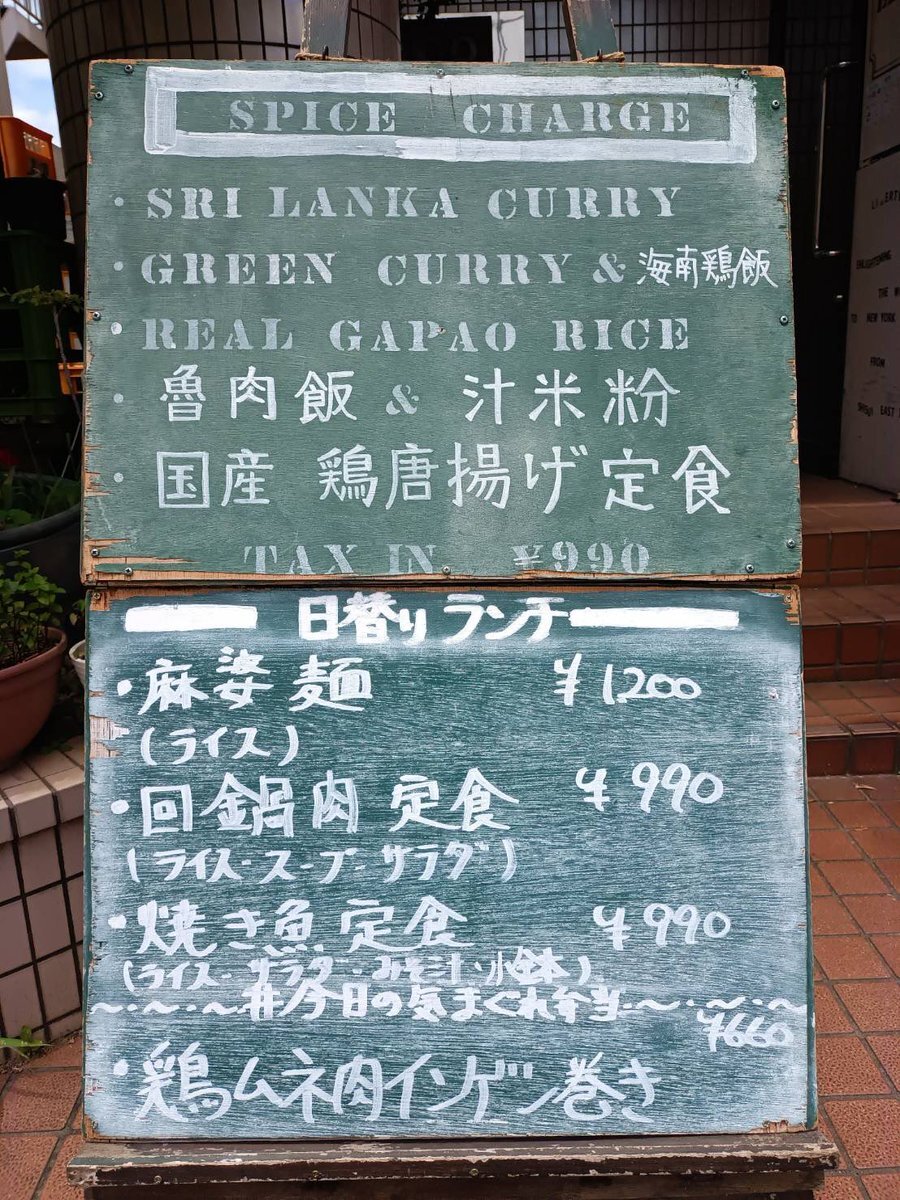 SPICE CHARGE
・SRI LANKA CURRY
・GREEN CURRY & 海南鶏飯
・REAL GAPAO RICE
・魯肉飯 & 汁米粉
・国産 鶏唐揚げ定食
TAX IN ¥990
日替り ランチ
・麻婆麺 ¥1.200
(ライス)
・回鍋肉 定食 ¥990
(ライス・スープ・サラダ)
・焼き魚 定食 ¥990
(ライス・サラダ・みそ汁・小鉢)
〜・〜・〜#今日の気まぐれ弁当〜・〜・〜
¥660
・鶏ムネ肉インゲン巻き
ENLIGHTENING
THE
TO NEW YORK
FROM
EAST